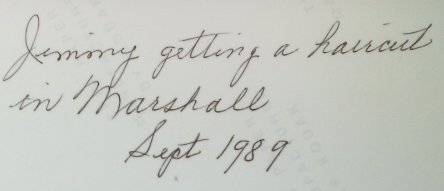 Jimmy getting a haircut
in Marshall
Sept 1989